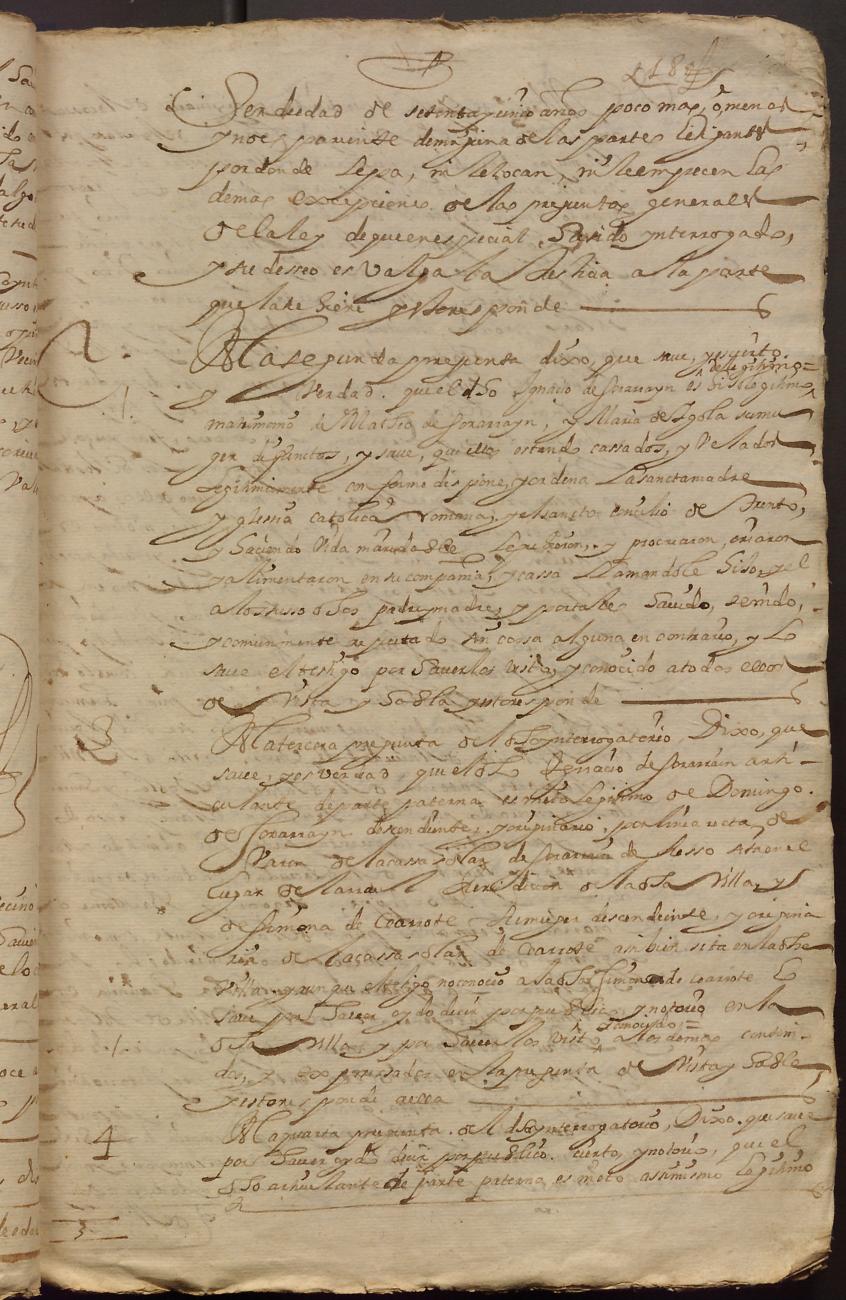 184
Ser de hedad de setenta y un años poco mas, o, menos
y no es pariente de ninguna de las partes litigantes
por donde sepa, ni le tocan, ni le empecen las
demas excepciones de las preguntas generales
de la ley de que en especial a sido ynterrogado,
y su desseo es valga la Justicia a la parte
que la tubiere y esto responde
2 A la segunda pregunta dixo, que save, y es cierto
y Verdad que el dho Ignacio de es hijo legitimo
de legitimo
matrimonio de Matheo de y Maria de Igola su mu
ger difunctos, y save, que ellos estando cassados, y Velados
legitimamente conforme dispone, y ordena La sancta madre
yglesia catolica romana, y el sancto concilio de Trento,
y haciendo Vida maridable le y procrearon, criaron
y alimentaron en su compañia, y cassa llamandole hijo, y el
a los susso dhos padre y madre, y por tal es havido, tenido,
y comunmente reputado sin cossa alguna en contrario, y lo
save el testigo por haverlos visto, y conocido a todos ellos
de Vista y habla y esto responde
3 A la tercera pregunta del dho ynterrogatorio, Dixo, que
save, y es verdad que el dho Ignacio de arti-
culante de parte paterna es nieto legitimo de Domingo
de descendiente, y originario por linea recta de
Varon de la cassa solar de
lugar de jurisdicion de la dha Villa, y
de Simona de Coarrote su muger descendiente, y origina
ria de la cassa solar de Coarrote assi bien sita en la dha
Villa y aunque el testigo no conocio a la dha Simona de Coarrote lo
save por haver oydo decir por publico y notorio en la
dha Villa y por haverlos visto, a los demas conteni-
conocido =
dos, y expressados en la pregunta de Vista y habla
y esto responde a ella
4 A la quarta pregunta del dho ynterrogatorio, Dixo que save
por haver oydo decir por publico cierto, y notorio, que el
dho articulante de parte paterna es nieto assimismo legitimo